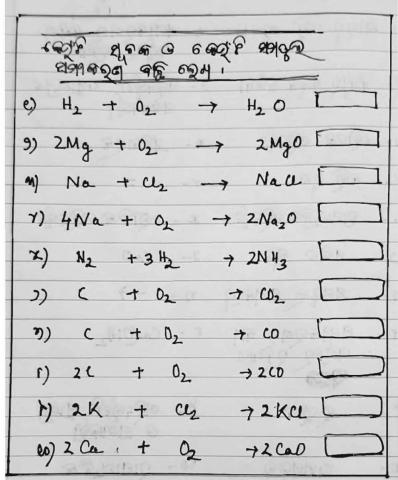 କେଉଁଟି ସ୍ଥୂଳକ ଓ କେଉଁଟି ସମତୁଲ
ସମୀକରଣ ବାଛି ଲେଖ ।
୧) H₂ + O₂ → H₂O
୨) 2Mg + O₂ → 2MgO
୩) Na + Cl₂ → NaCl
୪) 4Na + O₂ → 2Na₂O
୫) N₂ + 3H₂ → 2NH₃
୬) C + O₂ → CO₂
୭) C + O₂ → CO
୮) 2C + O₂ → 2CO
୯) 2K + Cl₂ → 2KCl
୧୦) 2Ca + O₂ → 2CaO